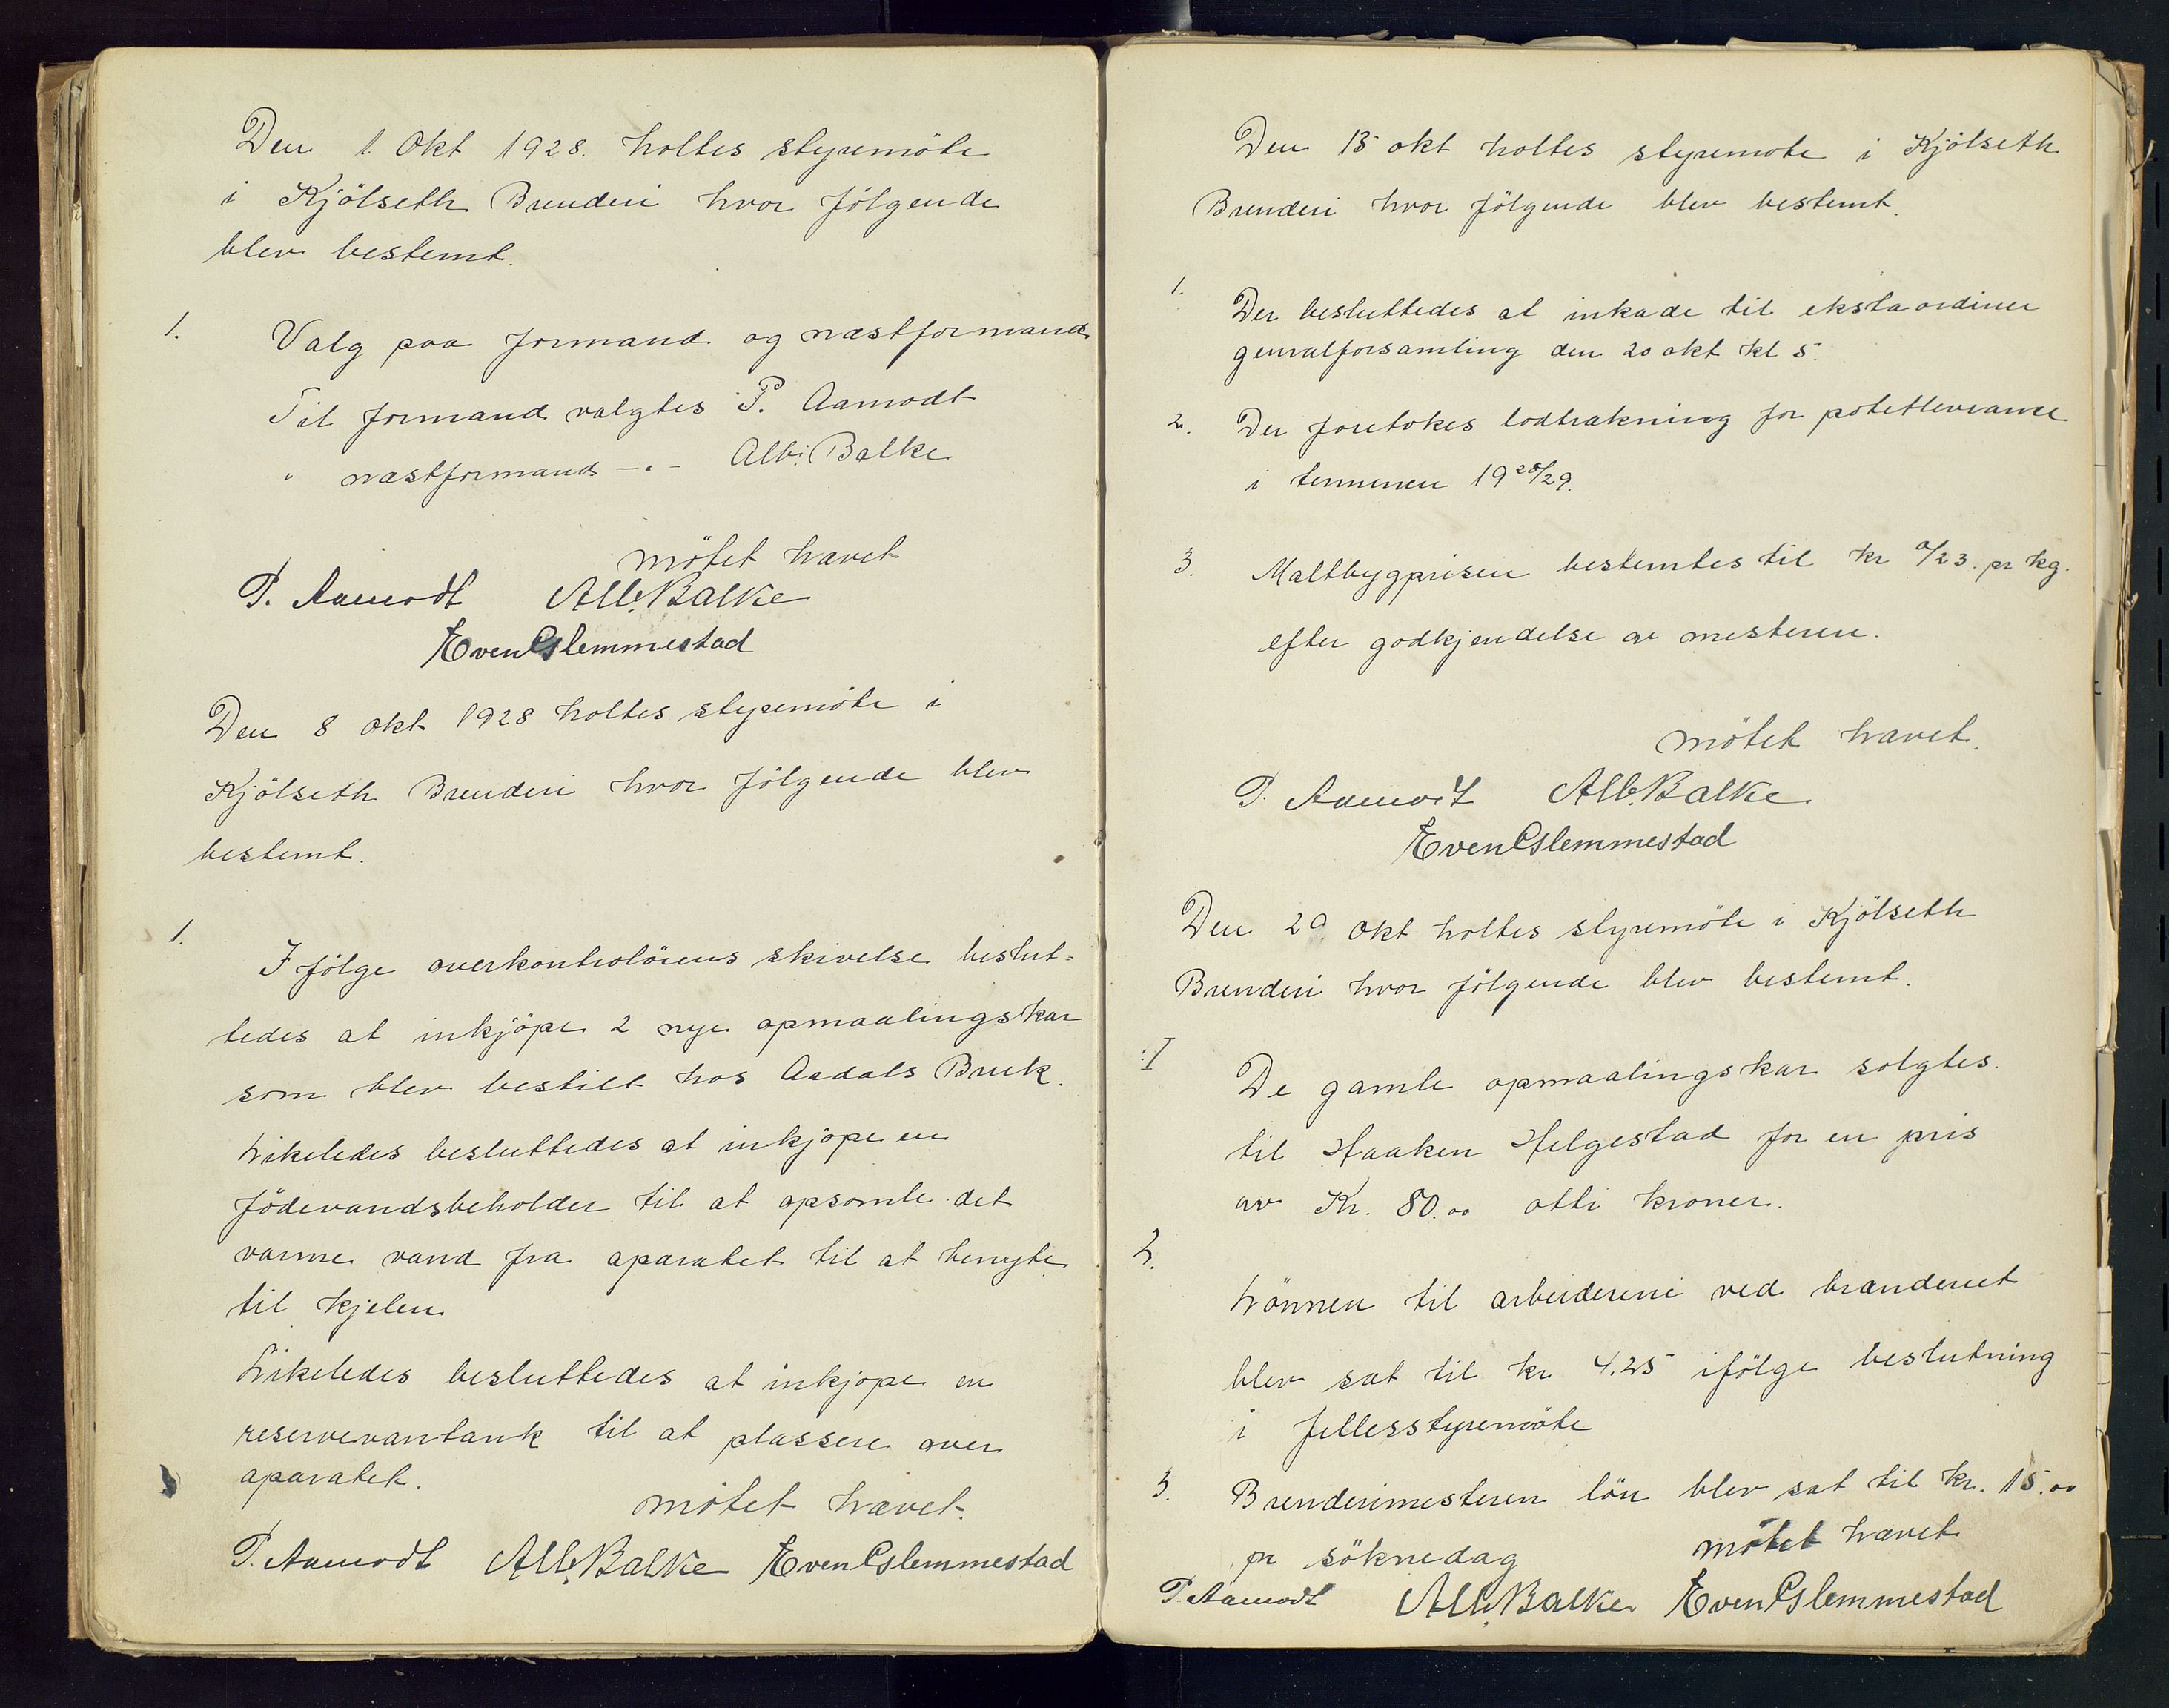 Den 1. Okt 1928. holtes styremöte
i Kjölseth Brenderi hvor fölgende
blev bestemt.
1. Valg paa formand og næstformand
Til formand valgtes P. Aamodt
" næstformand -"- Alb. Balke
Mötet hævet
P. Aamodt Alb. Balke
Even Gslemmestad
Den 8 okt 1928 holtes styremöte i
Kjölseth Brenderi hvor fölgende blev
bestemt.
1. I fölge overkontrolörens skivelse beslut-
tedes at inkjöpe 2 nye opmaalingskar
som blev bestilt hos Aadals Bruk.
Likeledes besluttedes at inkjöpe en
födevandsbeholder til at opsamle det
varme vand fra aparatet til at benyte
til kjelen
Likeledes besluttedes at inkjöpe en
reservevantank til at plassere over
aparatet.
Mötet hævet.
P. Aamodt Alb. Balke Even Gslemmestad
Den 15 okt holtes styremöte i Kjölseth
Brenderi hvor fölgende blev bestemt.
1. Der besluttedes at inkade til ekstaordiner
genralforsamling den 20 okt kl 5.
2. Der foretokes lodtrakning for potetleveranse
i terminen 1928/29.
3. Maltbygprisen bestemtes til kr 0/23. pr kg.
efter godkjendelse av mesteren.
Mötet hævet.
P. Aamodt Alb. Balke
Even Gslemmestad
Den 29. Okt holtes styremöte i Kjölseth
Brenderi hvor fölgende blev bestemt.
I De gamle opmaalingskar solgtes
til Haaken Helgestad for en pris
av Kr. 80.00 otti kroner.
2.
Lönnen til arbeiderene ved brænderiet
blev sat til kr 4.25 ifölge beslutning
i fellesstyremöte
3. Brenderimesteren lön blev sat til kr. 15.00
pr söknedag Mötet hævet
P. Aamodt Alb. Balke Even Gslemmestad